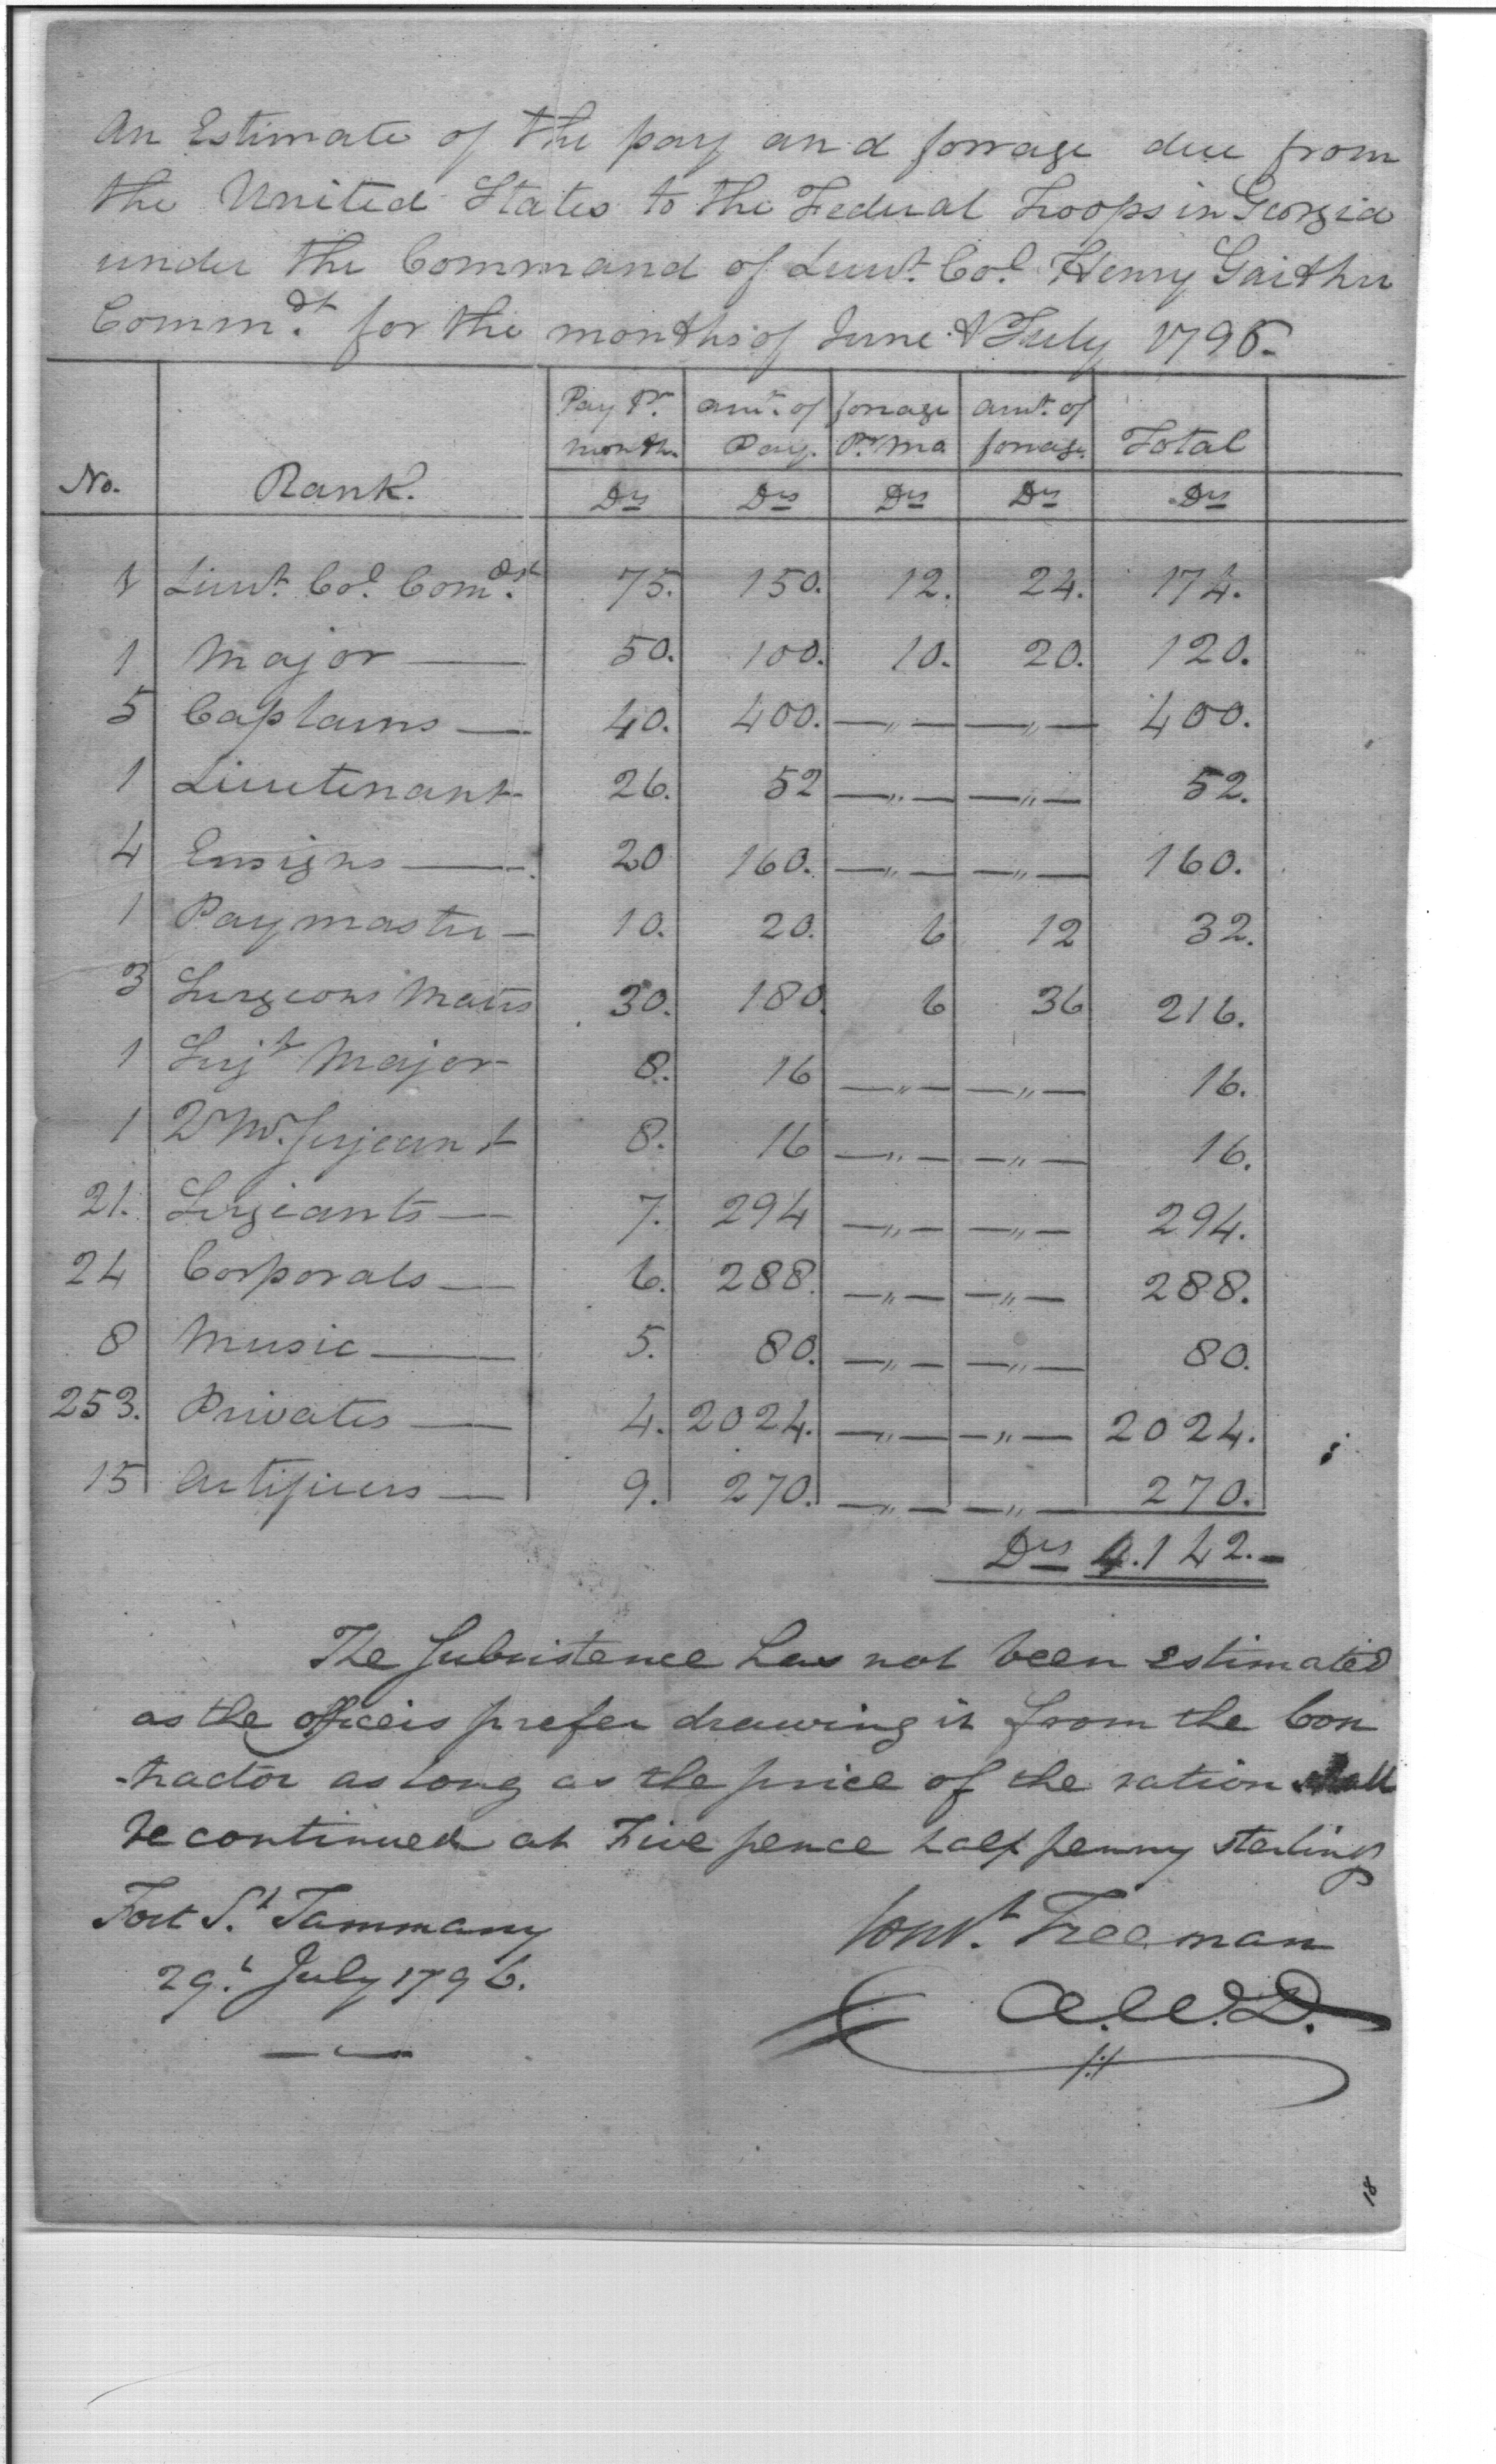 An Estimate of the pay and forrage due from
the United States to the Federal Troops in Georgia
under the Command of Lieut. Col. Henry Gaither
Commdt. for the months of June & July 1796.
No. Rank. Pay Pr. month. amt. of Pay. forrage Pr. Mo amt. of forrage. Total
Drs Drs Drs Drs Drs
1 Lieut. Col. Comdt. 75. 150. 12. 24. 174.
1 Major — 50. 100. 10. 20. 120.
5 Captains — 40. 400. —„— —„— 400.
1 Lieutenant 26. 52 —„— —„— 52.
4 Ensigns — 20 160. —„— —„— 160.
1 Paymaster — 10. 20. 6 12 32.
3 Surgeons Mates 30. 180. 6 36 216.
1 Serjt Major 8. 16 —„— —„— 16.
1 Qr Mr. Serjeant 8. 16 —„— —„— 16.
21. Serjeants — 7. 294 —„— —„— 294.
24 Corporals — 6. 288. —„— —„— 288.
8 Music — 5. 80. —„— —„— 80.
253. Privates — 4. 2024. —„— —„— 2024.
15 Artificers — 9. 270. —„— —„— 270.
Drs 4.142.-
The Subsistence has not been estimated
as the officers prefer drawing it from the Con
-tractor as long as the price of the ration shall
be continued at Five pence half penny sterling
Fort St. Tammany
29t. July 1796.
Const. Freeman
A.W.D.
18